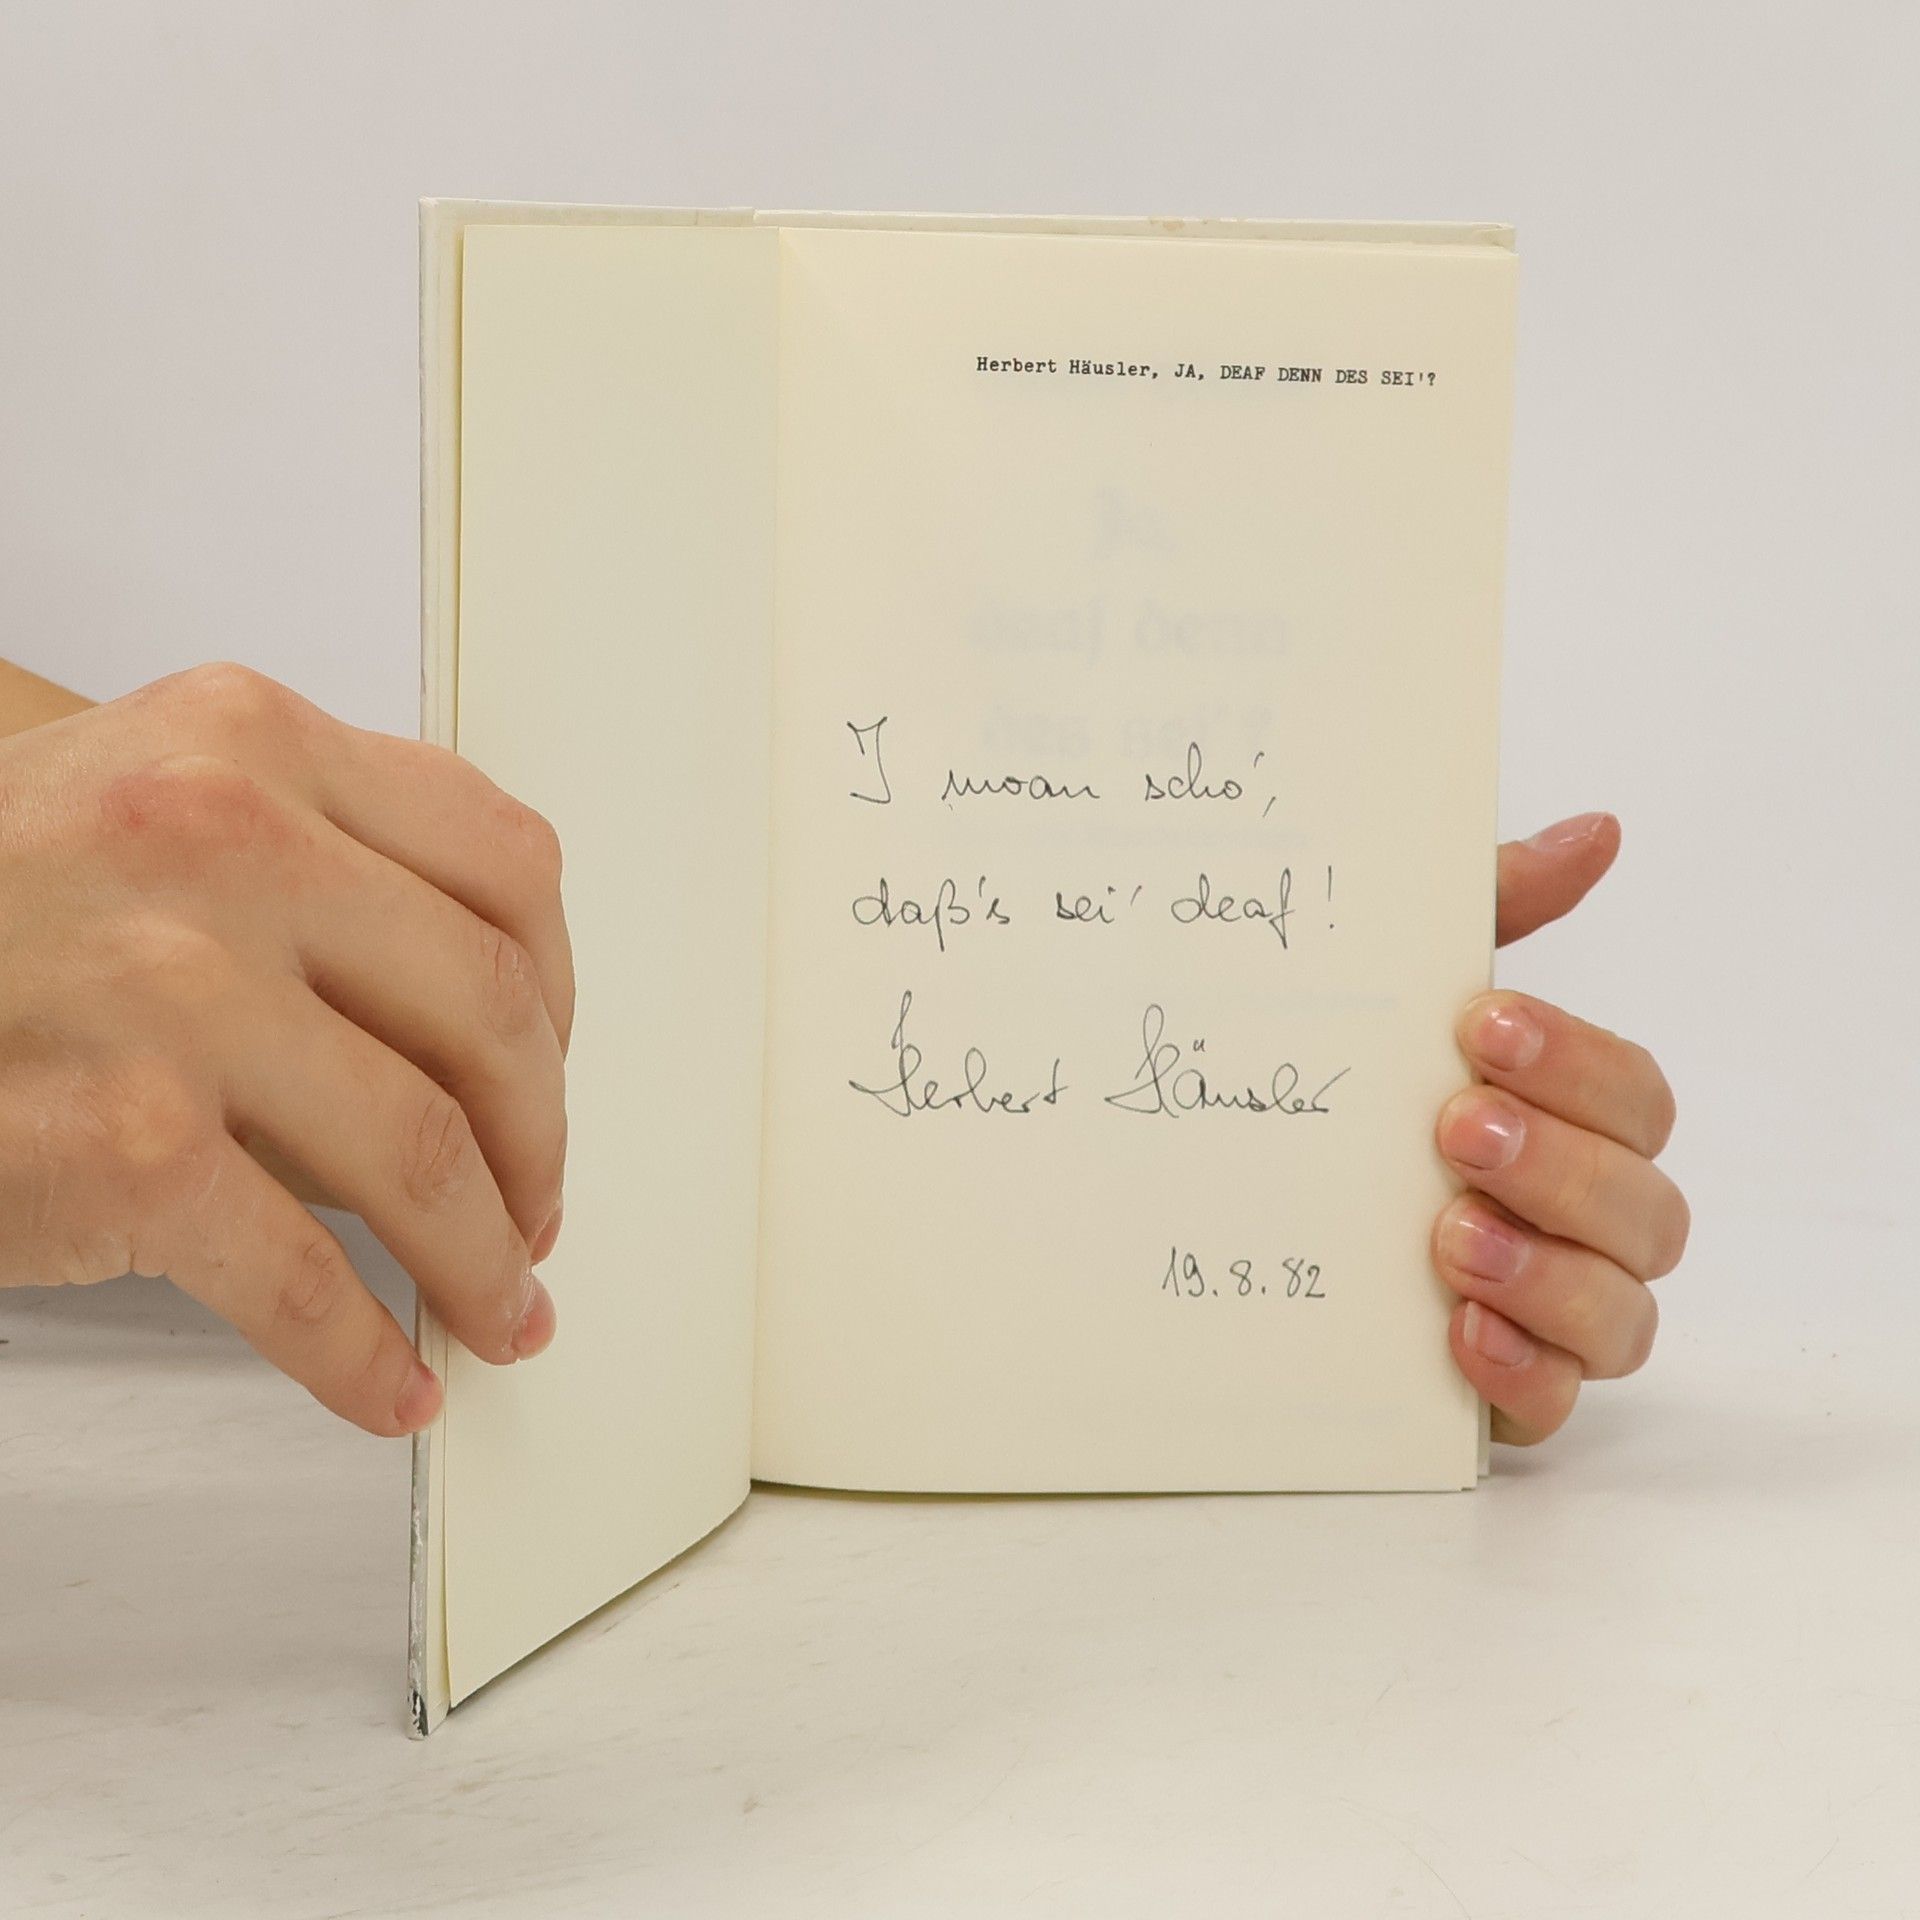 Herbert Häusler, JA, DEAF DENN DES SEI'?
I moan scho',
daß's sei' deaf!
Herbert Häusler
19.8.82